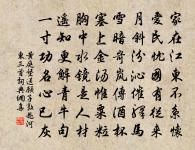 家在江東不繫懷
愛民憂國有從來
月斜汾沁催驛馬
雪暗岢嵐傳酒杯
塞上金湯惟粟粒
胸中水鏡是人材
遙知更解青牛句
一寸功名心已灰
黃庭堅送顧子敦赴河
東三首詞典網集